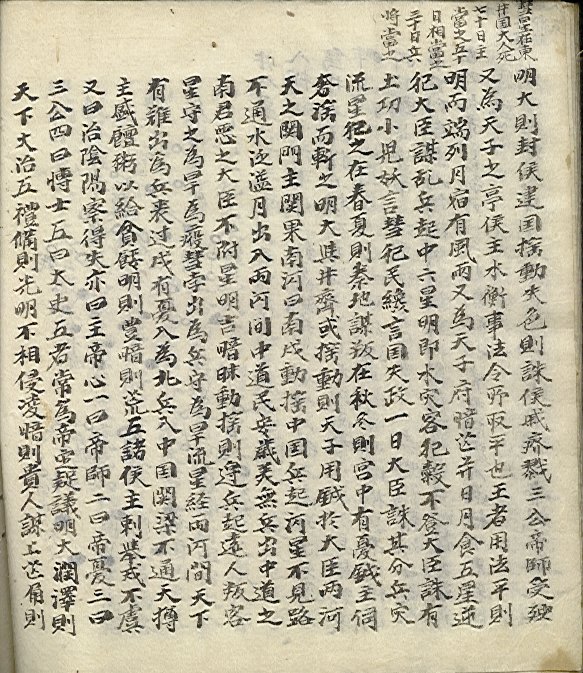 彗星在東
井国大人死
七十日主
當之五十
日相當之
三十日兵
將當之
明大則封侯建国揺動失色則誅侯戚斉戮三公帝師受殃
又為天子之亭侯主水衡事法令所取平也王者用法平則
明而端列月宿有風雨又為天子府暗芒并日月食五星逆
犯大臣謀乱兵起中六星明即水灾客犯穀不登大臣誅有
土功小児妖言彗犯民言国失政一曰大臣誅其分兵灾
流星犯之在春夏則秦地謀叛在秋冬則宮中有憂鉞主伺
奢淫而斬之明大与井齊或揺動則天子用鉞於大臣兩河
天之関門主関梁南河曰南戍動揺中国兵起河星不見路
不通水泛溢月出入兩河間中道民安歳美無兵出中道之
南君悪之大臣不附星明吉暗昧動揺則邊兵起遠人叛客
星守之為旱為疫彗孛出為兵守為旱流星経兩河間天下
有難出為兵来过戍有憂入為北兵入中国関梁不通天樽
主盛饘粥以給貧餒明則豊暗則荒五諸侯主刺挙戒不虞
又曰治陰陽察得失亦曰主帝心一曰帝師二曰帝憂三曰
三公四曰博士五曰太史五者常為帝定疑議明大潤澤則
天下大治五禮備則光明不相侵凌暗則貴人謀上芒角則